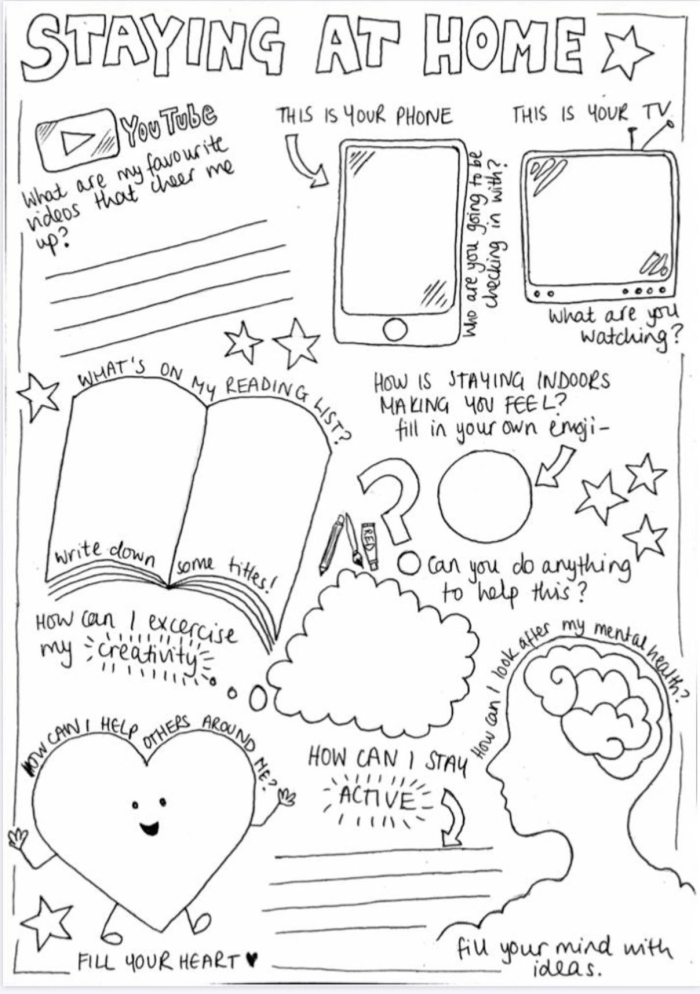 STAYING AT HOME
YouTube
What are my favourite
videos that cheer me
up?
THIS IS YOUR PHONE
who are you going to be
checking in with?
THIS IS YOUR TV
What are you
watching?
WHAT'S ON MY READING LIST?
write down some titles!
HOW IS STAYING INDOORS
MAKING YOU FEEL?
fill in your own emoji-
RED
Can you do anything
to help this?
HOW can I excercise
my creativity
How can I look after my mental health?
HOW CAN I HELP OTHERS AROUND ME?
HOW CAN I STAY
ACTIVE
FILL YOUR HEART
fill your mind with
ideas.